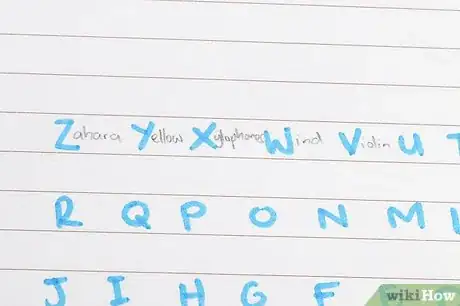 Zahara Yellow Xylophones Wind Violin U T
R Q P O N M L
J I H G F
wikiHow